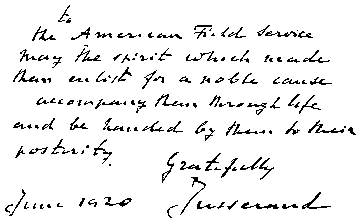 to
the American Field Service
may the spirit which made
them enlist for a noble cause
accompany them through life
and be handed by them to their
posterity.
Gratefully
June 1920 Jusserand